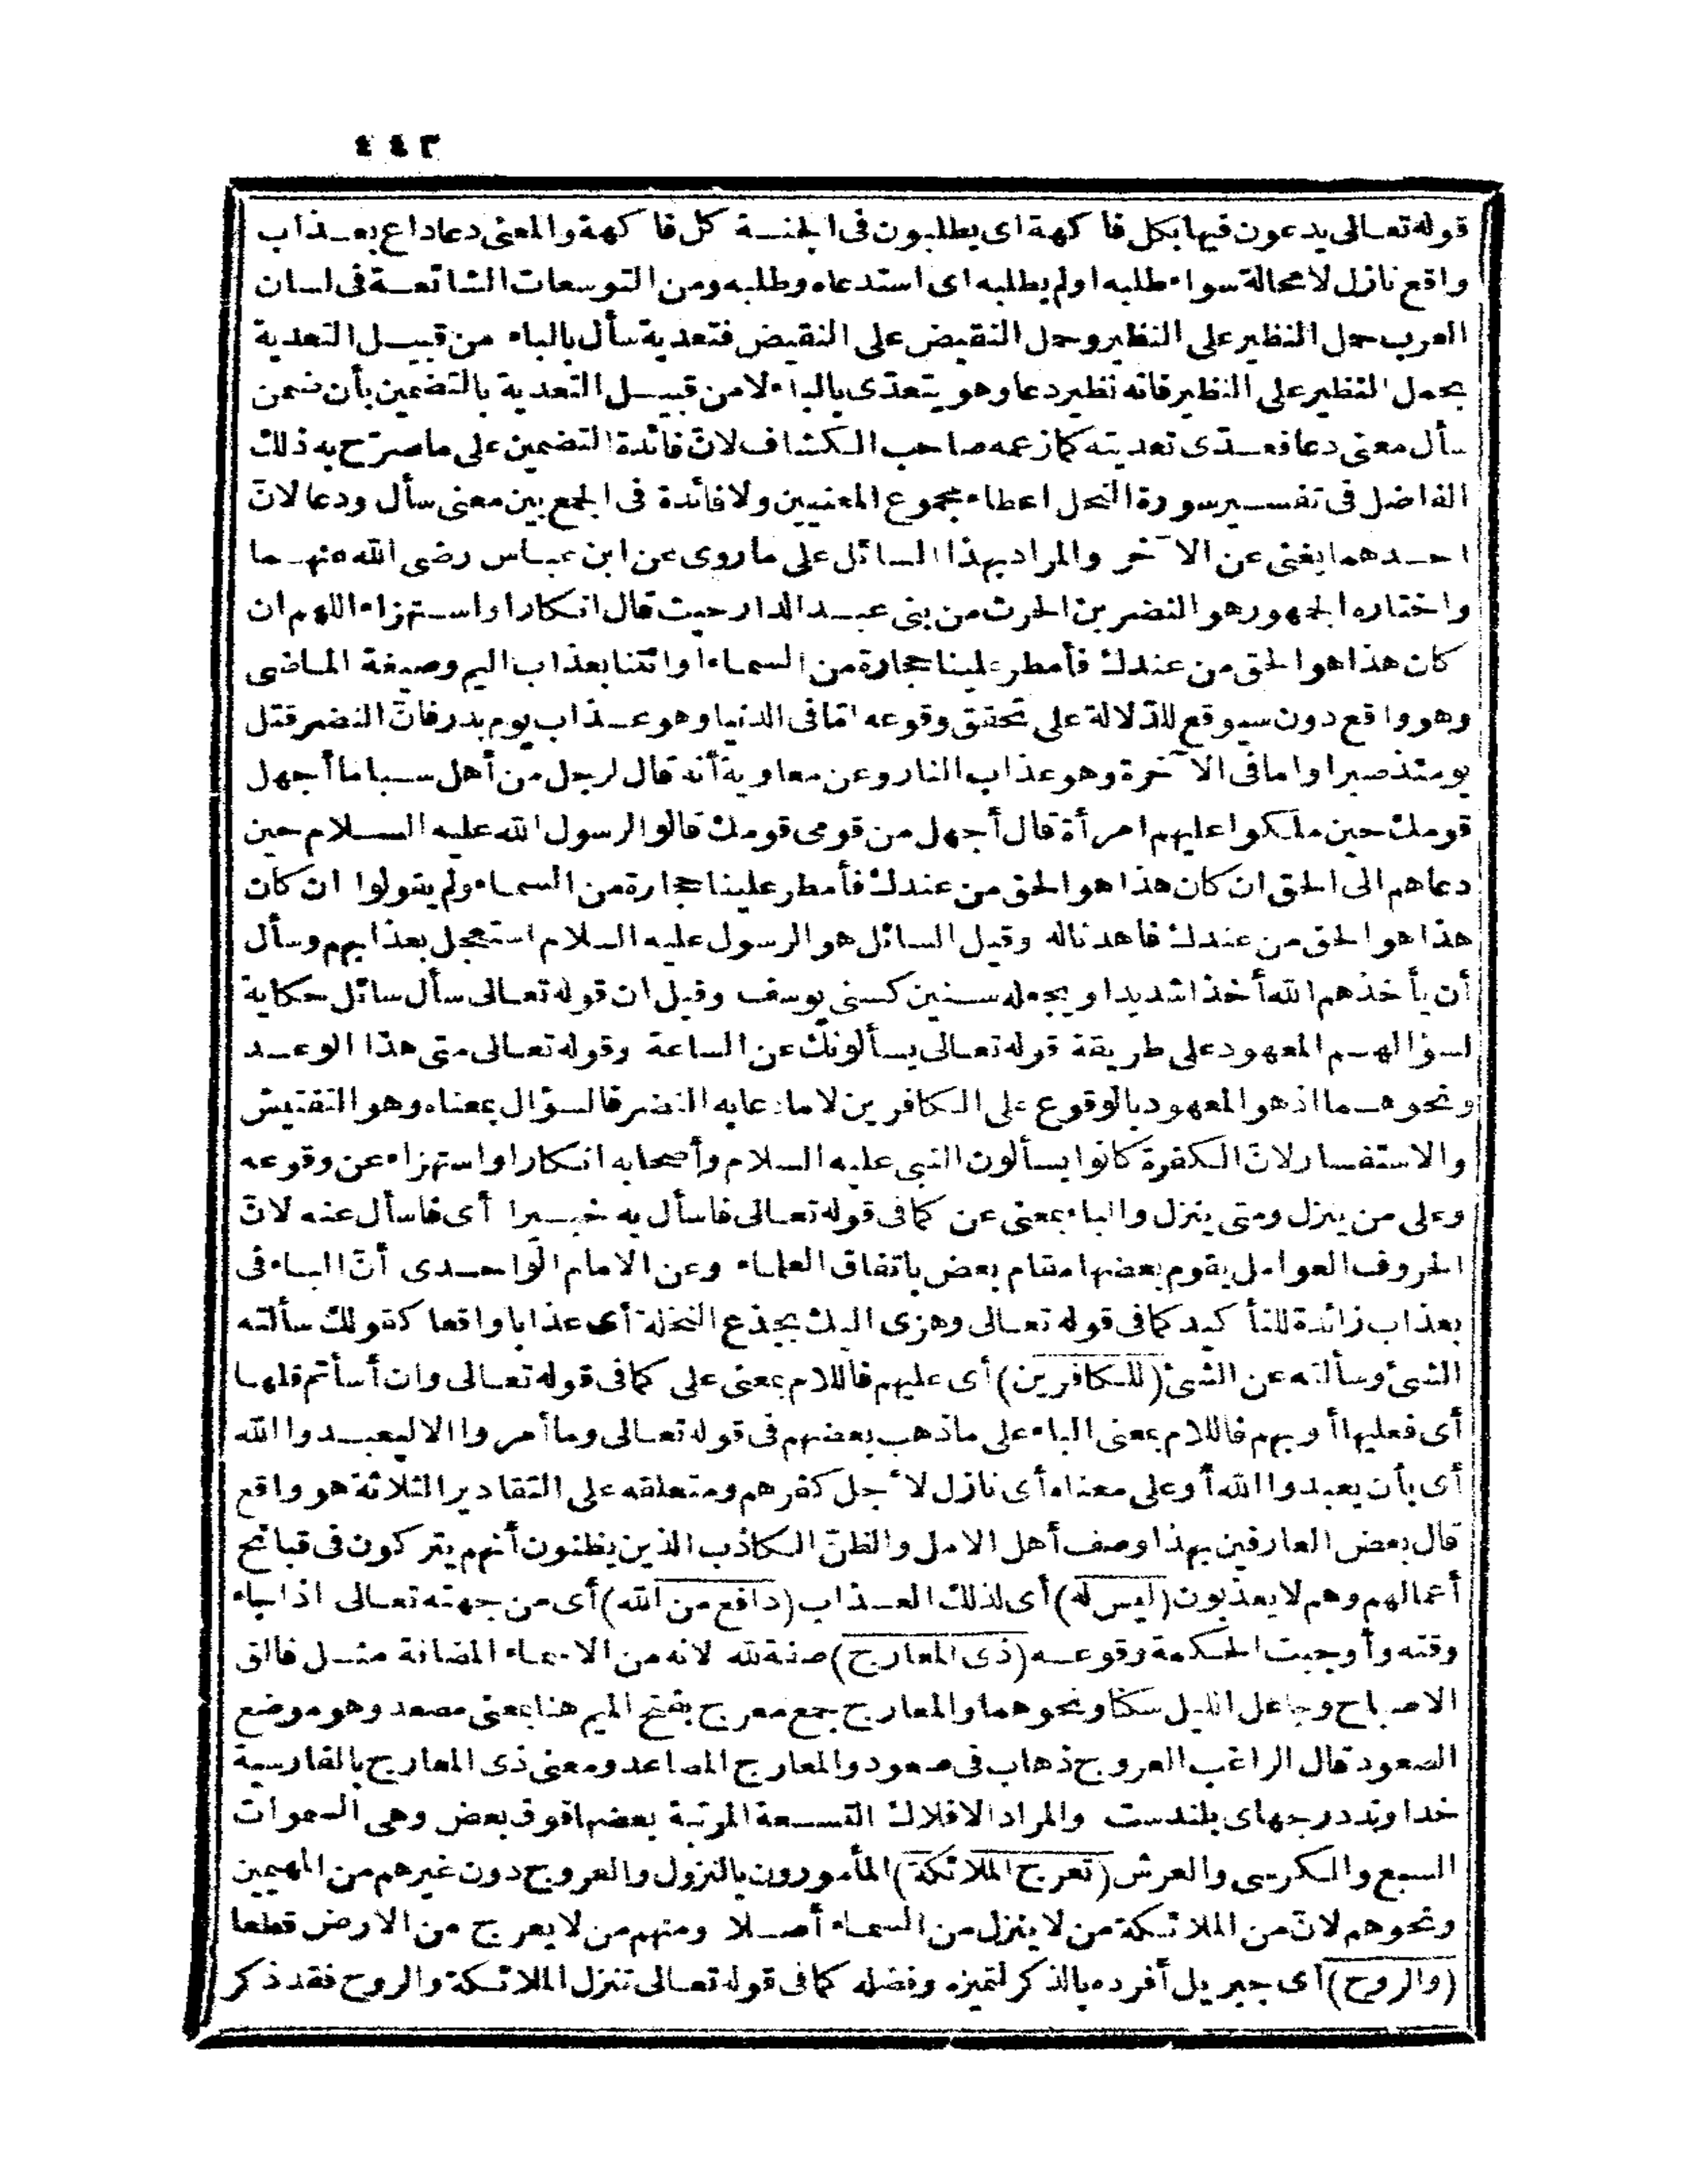 ٤٤٣
قوله تعالى يدعون فيها بكل فاكهة اى يطلبون فى الجنة كل فاكهة والمعنى دعا داع بعذاب
واقع نازل لا محالة سواء طلبه اولم يطلبه اى استدعاه وطلبه ومن التوسعات الشائعة فى لسان
العرب حمل النظير على النظير وحمل النقيض على النقيض فتعدية سأل بالباء من قبيل التعدية
بحمل النظير على النظير فانه نظير دعا وهو يتعدّى بالباء لا من قبيل التعدية بالتضمين بأن ضمن
سأل معنى دعا فعدّى تعديته كما زعمه صاحب الكشاف لانّ فائدة التضمين على ما صرّح به ذلك
الفاضل فى تفسير سورة النحل اعطاء مجموع المعنيين ولا فائدة فى الجمع بين معنى سأل ودعا لانّ
احدهما يغنى عن الآخر والمراد بهذا السائل على ما روى عن ابن عباس رضى الله عنهما
واختاره الجمهور هو النضر بن الحرث من بنى عبد الدار حيث قال انكارا واستهزاء اللهم ان
كان هذا هو الحق من عندك فأمطر علينا حجارة من السماء او ائتنا بعذاب اليم وصيغة الماضى
وهو واقع دون سيوقع للدّلالة على تحقق وقوعه امّا فى الدنيا وهو عذاب يوم بدر فانّ النضر قتل
يومئذ صبرا واما فى الآخرة وهو عذاب النار وعن معاوية أنه قال لرجل من أهل سبا ما أجهل
قومك حين ملكوا عليهم امرأة قال أجهل من قومى قومك قالوا لرسول الله عليه السلام حين
دعاهم الى الحق ان كان هذا هو الحق من عندك فأمطر علينا حجارة من السماء ولم يقولوا ان كان
هذا هو الحق من عندك فاهدنا له وقيل السائل هو الرسول عليه السلام استعجل بعذابهم وسأل
أن يأخذهم الله أخذا شديدا ويجعله سنين كسنى يوسف وقيل ان قوله تعالى سأل سائل حكاية
لسؤالهم المعهود على طريقة قوله تعالى يسألونك عن الساعة وقوله تعالى متى هذا الوعد
ونحوهما اذ هو المعهود بالوقوع على الكافرين لا ما دعا به النضر فالسؤال بمعناه وهو التفتيش
والاستفسار لانّ الكفرة كانوا يسألون النبى عليه السلام وأصحابه انكارا واستهزاء عن وقوعه
وعلى من ينزل ومتى ينزل والباء بمعنى عن كما فى قوله تعالى فاسأل به خبيرا أى فاسأل عنه لانّ
الحروف العوامل يقوم بعضها مقام بعض باتفاق العلماء وعن الامام الواحدى أنّ الباء فى
بعذاب زائدة للتأكيد كما فى قوله تعالى وهزى اليك بجذع النخلة أى عذابا واقعا كقولك سألته
الشئ وسألته عن الشئ (للكافرين) أى عليهم فاللام بمعنى على كما فى قوله تعالى وان أسأتم فلها
أى فعليها أو بهم فاللام بمعنى الباء على ما ذهب بعضهم فى قوله تعالى وما أمروا الا ليعبدوا الله
أى بأن يعبدوا الله أو على معناه أى نازل لاجل كفرهم ومتعلقه على التقادير الثلاثة هو واقع
قال بعض العارفين بهذا وصف أهل الامل والظنّ الكاذب الذين يظنون أنهم يتركون فى قبائح
أعمالهم وهم لا يعذبون (ليس له) أى لذلك العذاب (دافع من الله) أى من جهته تعالى اذا جاء
وقته وأوجبت الحكمة وقوعه (ذى المعارج) صفة لله لانه من الاسماء المضافة مثل فالق
الاصباح وجاعل الليل سكنا ونحوهما والمعارج جمع معرج بفتح الميم هنا بمعنى مصعد وهو موضع
الصعود قال الراغب العروج ذهاب فى صعود والمعارج المصاعد ومعنى ذى المعارج بالفارسية
خداوند درجهاى بلندست والمراد الافلاك التسعة المرتبة بعضها فوق بعض وهى السموات
السبع والكرسى والعرش (تعرج الملائكة) المأمورون بالنزول والعروج دون غيرهم من المهيمين
ونحوهم لانّ من الملائكة من لا ينزل من السماء أصلا ومنهم من لا يعرج من الارض قطعا
(والروح) أى جبريل أفرده بالذكر لتميزه وفضله كما فى قوله تعالى تنزل الملائكة والروح فقد ذكر